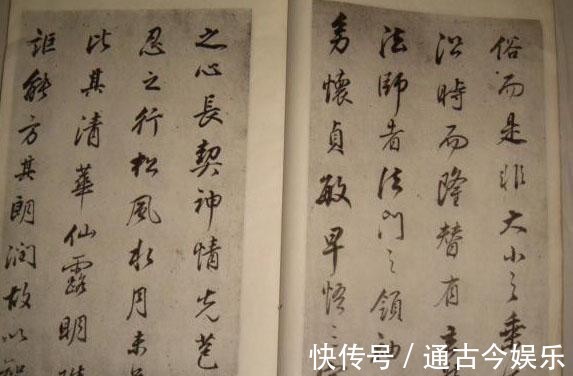 俗而是非大小之乘
沿時而隆替有玄
法師者法門之領袖
幼懷貞敏早悟三
之心長契神情先苞
忍之行松風水月未
比其清華仙露明珠
詎能方其朗潤故以智
快传号 / 通古今娱乐